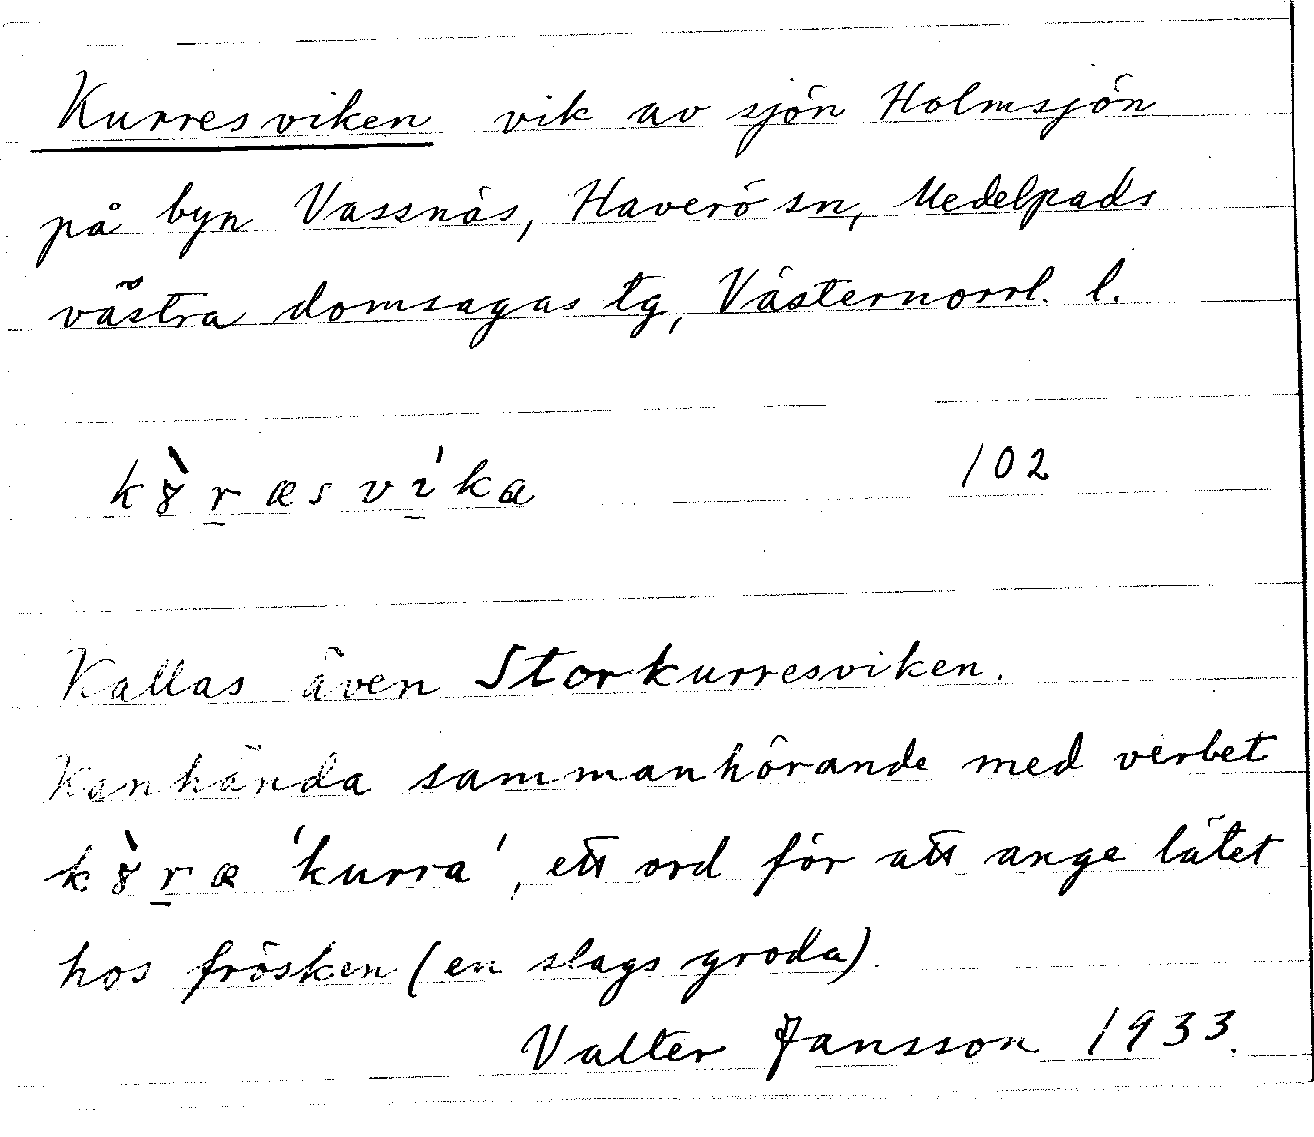 Kurresviken vik av sjön Holmsjön
på byn Vassnäs, Haverö sn, Medelpads
västra domsagas tg, Västernorrl. l.
kȣ̀r̲æsvı̲́ka 102
Kallas även Storkurresviken.
Kanhända sammanhörande med verbet
kȣ̀r̲æ 'kurra', ett ord för att ange lätet
hos frösken (en slags groda).
Valter Jansson 1933.